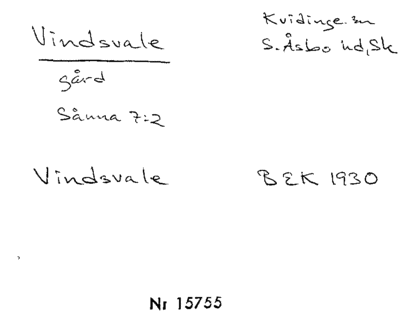 Vindsvale
Kvidinge sn
S. Åsbo hd, Sk
gård
Sånna 7:2
Vindsvale
BEK 1930
Nr 15755